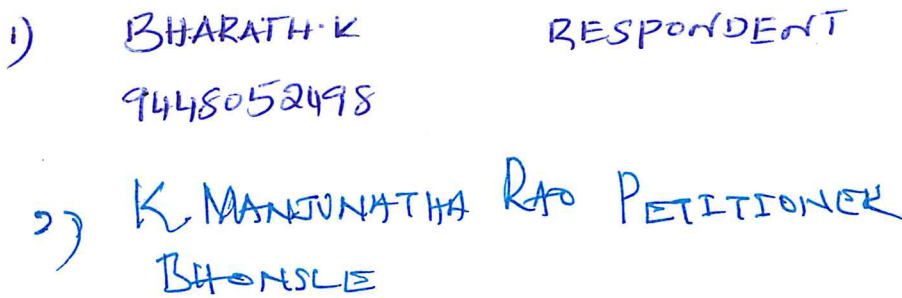 1) BHARATH.K RESPONDENT
9448052498
2) K MANJUNATHA RAO PETITIONER
BHONSLE